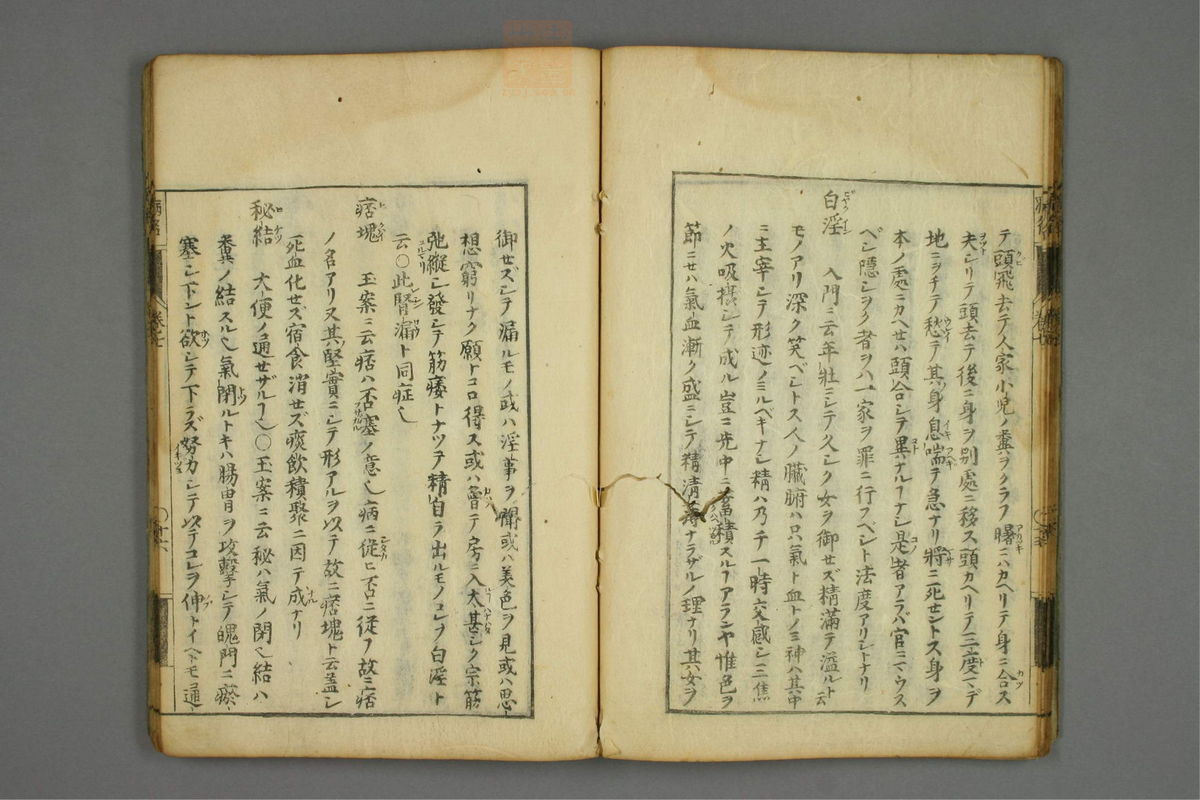 テ頭飛去テ人家小児ノ糞ヲクラフ曙ニハカヘリテ身ニ合ス
夫シリテ頭去テ後ニ身ヲ別處ニ移ス頭カヘリテ三度マデ
地ニヲチテ愁テ其身息喘テ急ナリ將ニ死セントス身ヲ
本ノ處ニカヘセハ頭合シテ異ナルヿナシ是者アラバ官ニマウス
ベシ隠シヲク者ヲハ一家ヲ罪ニ行フベシト法度アリシトナリ
白淫 入門ニ云年壯ニシテ久シク女ヲ御セズ精滿テ溢ルト云
モノアリ深ク笑ベシトス人ノ臟腑ハ只氣ト血トノミ神ハ其中
ニ主宰シテ形迹ノミルベキナシ精ハ乃チ一時交感シ三焦
ノ火吸撮シテ成ル豈ニ先中ニ蓄積スルヿアランヤ惟色ヲ
節ニセハ氣血漸ク盛ニシテ精清薄ナラザルノ理ナリ其女ヲ
御セズシテ漏ルモノ或ハ淫事ヲ聞或ハ美色ヲ見或ハ思
想窮リナク願トコロ得ス或ハ曾テ房ニ入太甚シク宗筋
弛縱シ發シテ筋痿トナツテ精自ラ出ルモノコレヲ白淫ト
云〇此腎漏ト同症也
痞塊 玉案ニ云痞ハ否塞ノ意也病ニ從ヒ否ニ從フ故ニ痞
ノ名アリ又其堅實ニシテ形アルヲ以テ故ニ痞塊ト云蓋シ
死血化セズ宿食消セズ痰飲積聚ニ因テ成ナリ
秘結 大便ノ通セザルヿ也〇玉案ニ云秘ハ氣ノ閉也結ハ
糞ノ結スル也氣閉ルトキハ腸胃ヲ攻擊シテ魄門ニ瘀
塞シ下ント欲シテ下ラズ努力シテ以テコレヲ伸トイヘドモ通